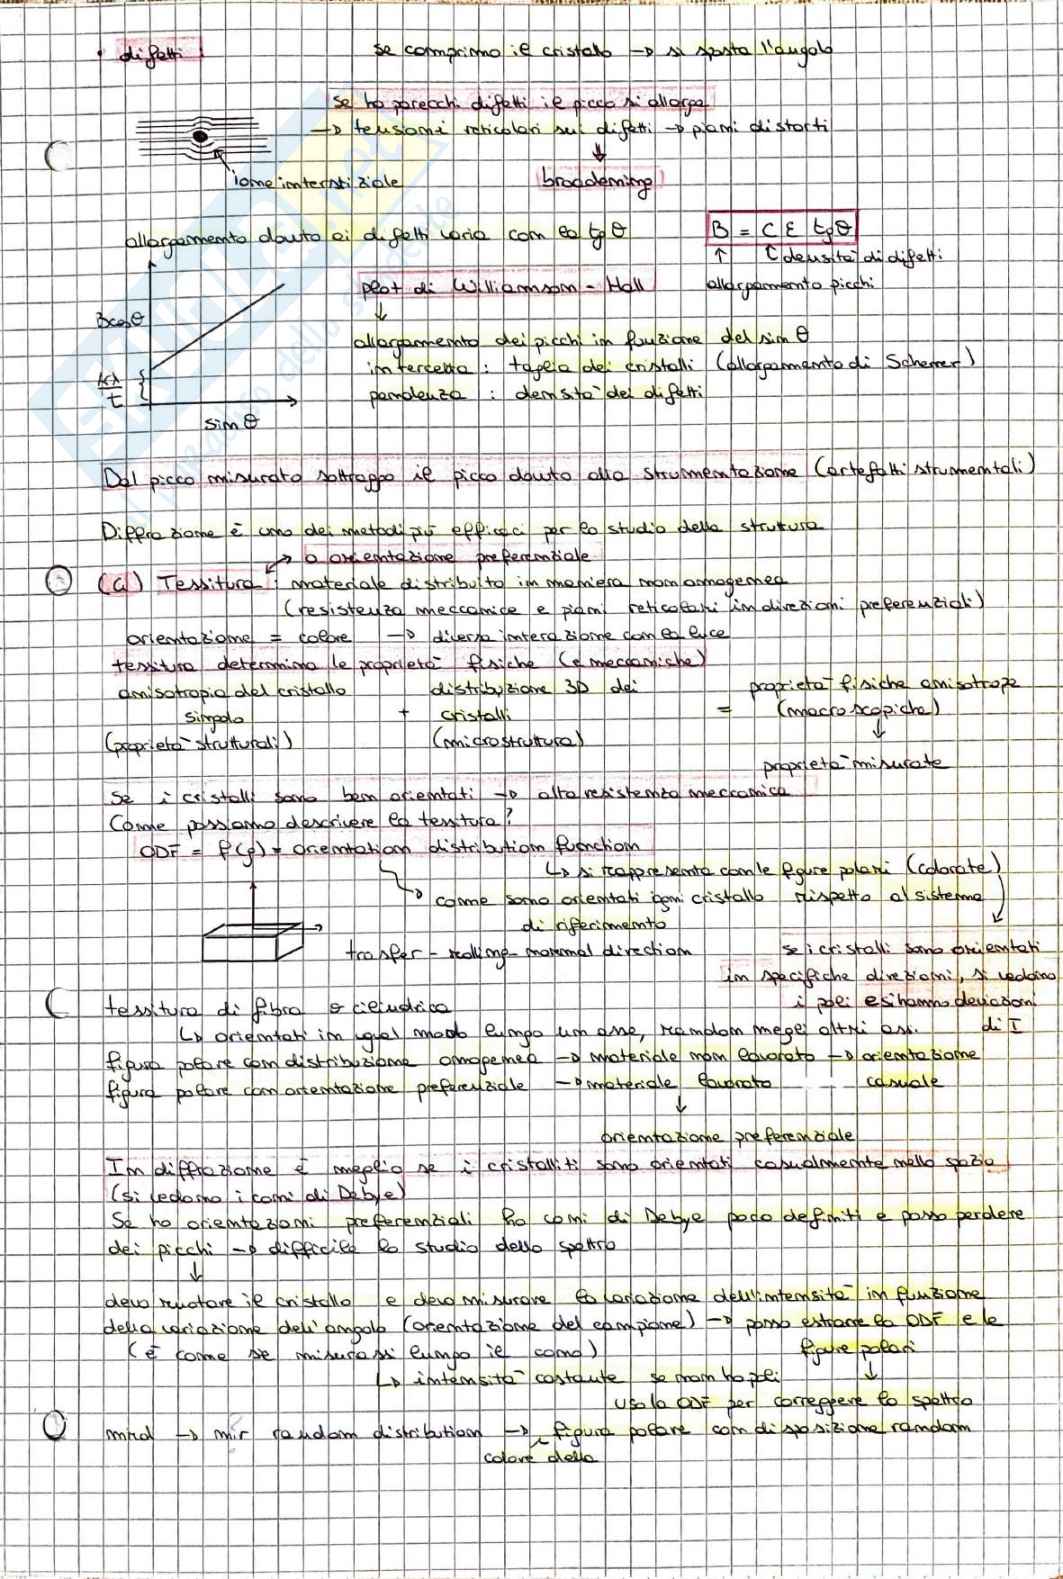 • difetti:
se comprimo il cristallo → si sposta l'angolo
se ho parecchi difetti il picco si allarga
→ tensioni reticolari sui difetti → piani distorti
ione interstiziale
broadening
allargamento dovuto ai difetti varia con la tg θ
B = C ε tg θ
densità di difetti
plot di Williamson - Hall
allargamento picchi
Bcosθ
allargamento dei picchi in funzione del sin θ
intercetta : taglia dei cristalli (allargamento di Scherrer)
kλ
t
pendenza : densità dei difetti
sin θ
Dal picco misurato sottraggo il picco dovuto alla strumentazione (artefatti strumentali)
Diffrazione è uno dei metodi più efficaci per lo studio della struttura
→ o orientazione preferenziale
(a) Tessitura : materiale distribuito in maniera non omogenea
(resistenza meccanica e piani reticolari in direzioni preferenziali)
orientazione = colore → diversa interazione con la luce
tessitura determina le proprietà fisiche (e meccaniche)
anisotropia del cristallo distribuzione 3D dei proprietà fisiche anisotrope
singolo + cristalli = (macroscopiche)
(proprietà strutturali) (microstruttura)
proprietà misurate
Se i cristalli sono ben orientati → alta resistenza meccanica
Come possiamo descrivere la tessitura?
ODF = f(g) = orientation distribution function
↳ si rappresenta con le figure polari (colorate)
come sono orientati ogni cristallo rispetto al sistema
di riferimento
trasfer - rolling - normal direction
se i cristalli sono orientati
in specifiche direzioni, si vedono
i poli e si hanno deviazioni
di I
tessitura di fibra o cilindrica
↳ orientati in ugual modo lungo un asse, random negli altri assi.
figura polare con distribuzione omogenea → materiale non lavorato → orientazione
casuale
figura polare con orientazione preferenziale → materiale lavorato
orientazione preferenziale
In diffrazione è meglio se i cristalliti sono orientati casualmente nello spazio
(si vedono i coni di Debye)
Se ho orientazioni preferenziali ho coni di Debye poco definiti e posso perdere
dei picchi → difficile lo studio dello spettro
devo ruotare il cristallo e devo misurare la variazione dell'intensità in funzione
della variazione dell'angolo (orientazione del campione) → posso estrarre la ODF e le
figure polari
(è come se misurassi lungo il cono)
↳ intensità costante se non ho poli
uso la ODF per correggere lo spettro
mrd → mir random distribution → figura polare con disposizione random
colore della